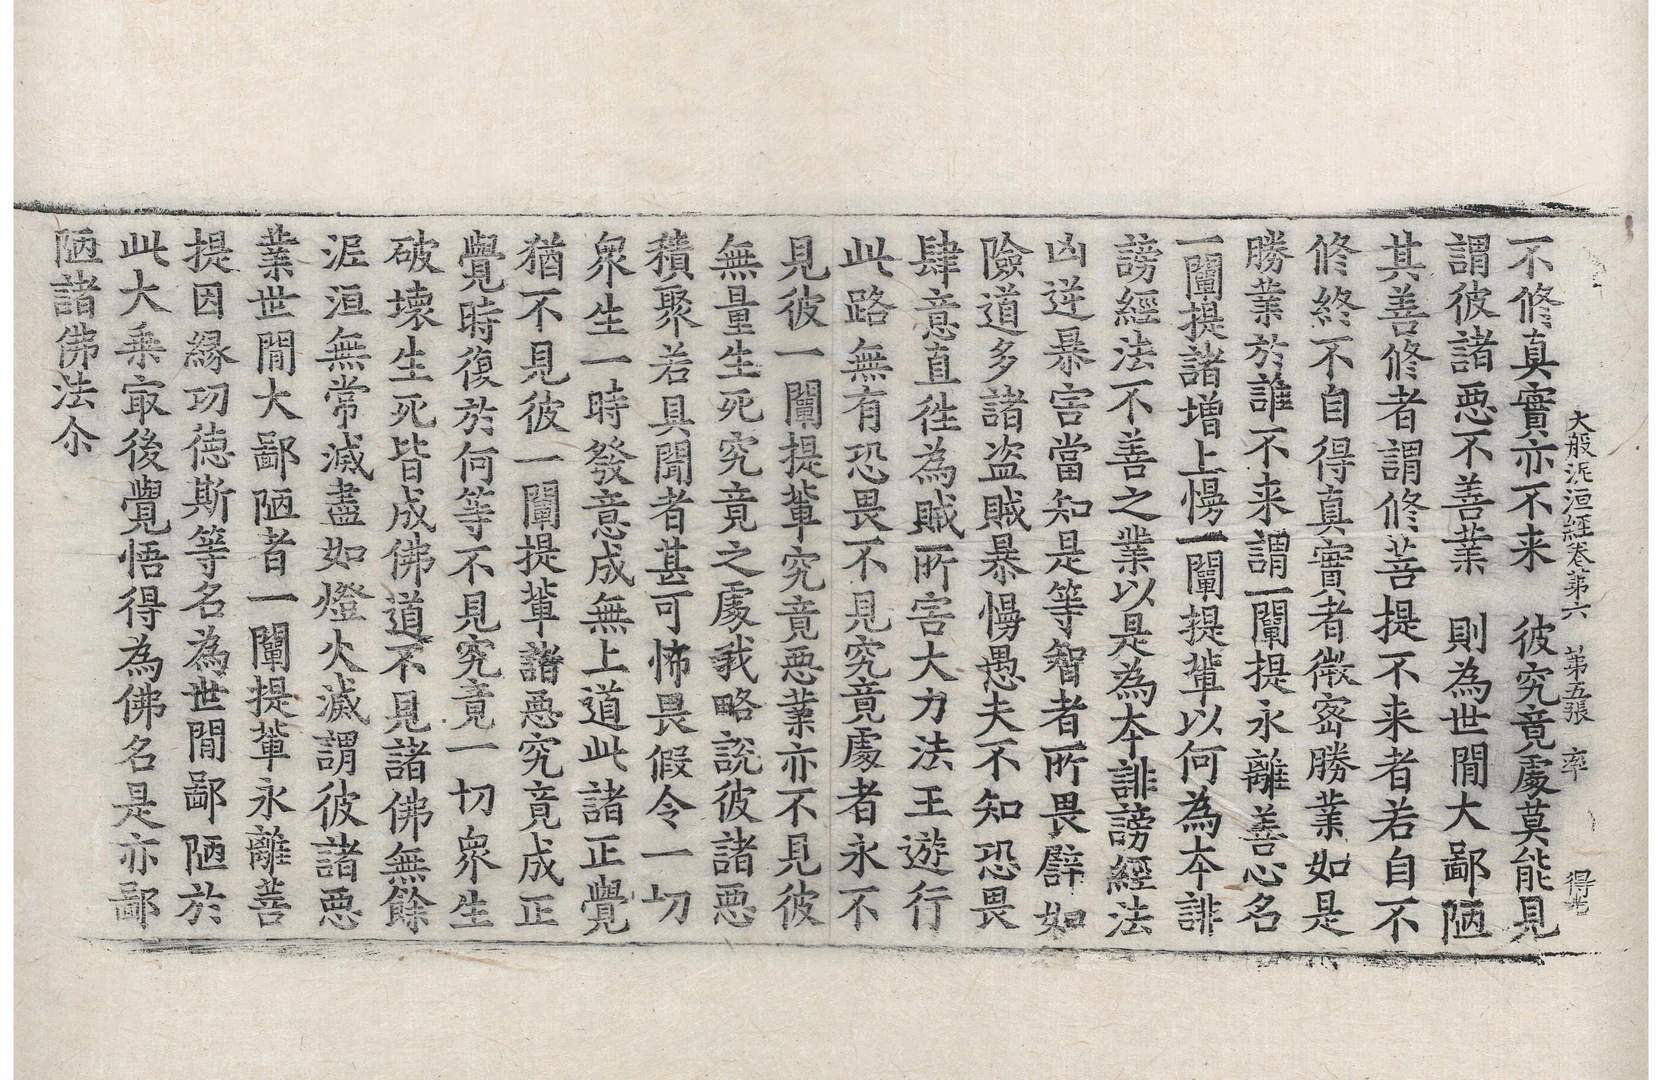 大般泥洹經卷第六　第五張　率　得
不修真實亦不来　彼究竟處莫能見
謂彼諸惡不善業　則為世間大鄙陋
其善修者謂修菩提不来者若自不
修終不自得真實者微密勝業如是
勝業於誰不来謂一闡提永離善心名
一闡提諸增上慢一闡提軰以何為本誹
謗經法不善之業以是為本誹謗經法
凶逆暴害當知是等智者所畏譬如
險道多諸盗賊暴慢愚夫不知恐畏
肆意直徃為賊所害大力法王遊行
此路無有恐畏不見究竟處者永不
見彼一闡提軰究竟惡業亦不見彼
無量生死究竟之處我略說彼諸惡
積聚若具聞者甚可怖畏假令一切
衆生一時發意成無上道此諸正覺
猶不見彼一闡提軰諸惡究竟成正
覺時復於何等不見究竟一切衆生
破壞生死皆成佛道不見諸佛無餘
泥洹無常滅盡如燈火滅謂彼諸惡
業世間大鄙陋者一闡提軰永離菩
提因緣功德斯等名為世間鄙陋於
此大乗㝡後覺悟得為佛名是亦鄙
陋諸佛法尒